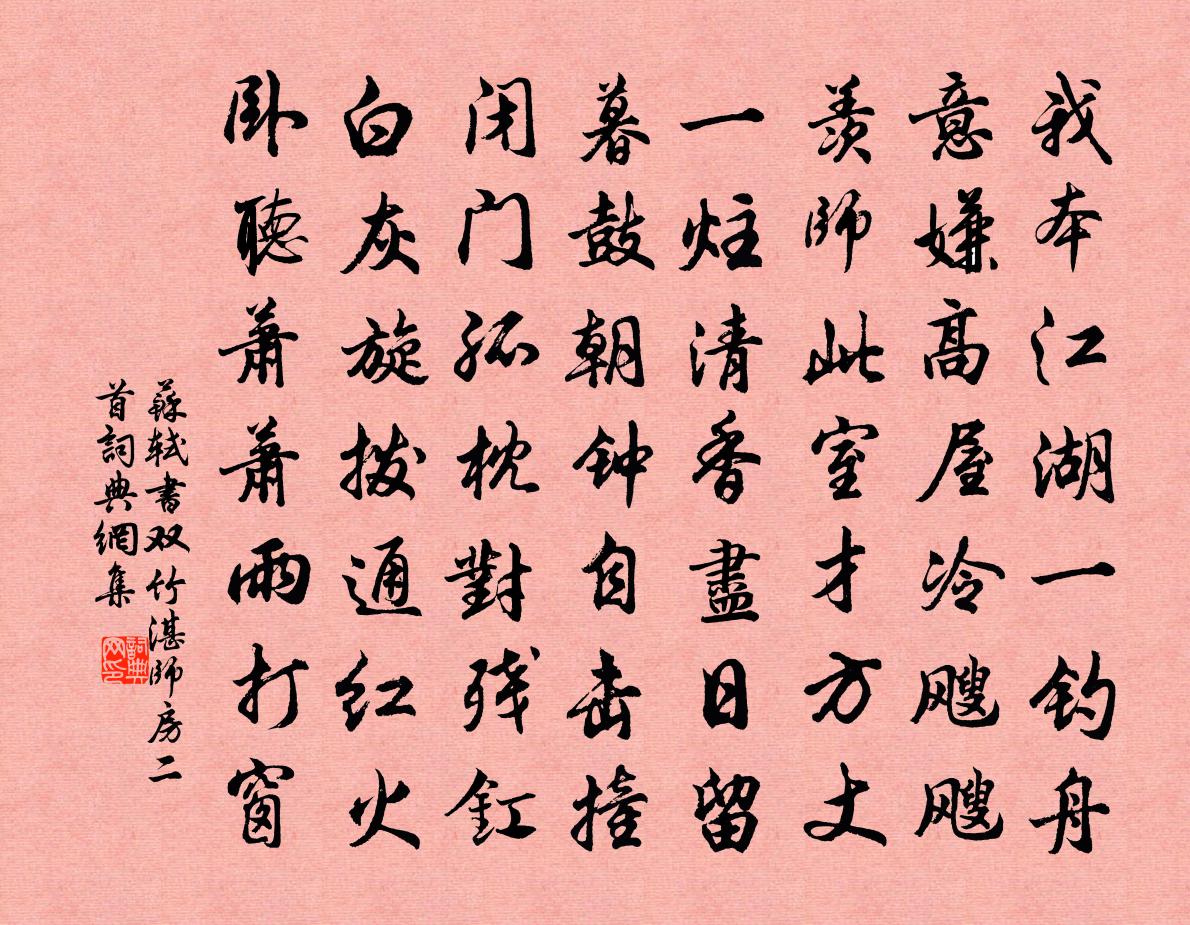 我本江湖一钓舟
意嫌高屋冷飕飕
羨師此室才方丈
一炷清香盡日留
暮鼓朝钟自击撞
闭门孤枕對残釭
白灰旋拨通红火
卧聽萧萧雨打窗
蘇轼書双竹湛師房二
首詞典網集
詞典网印